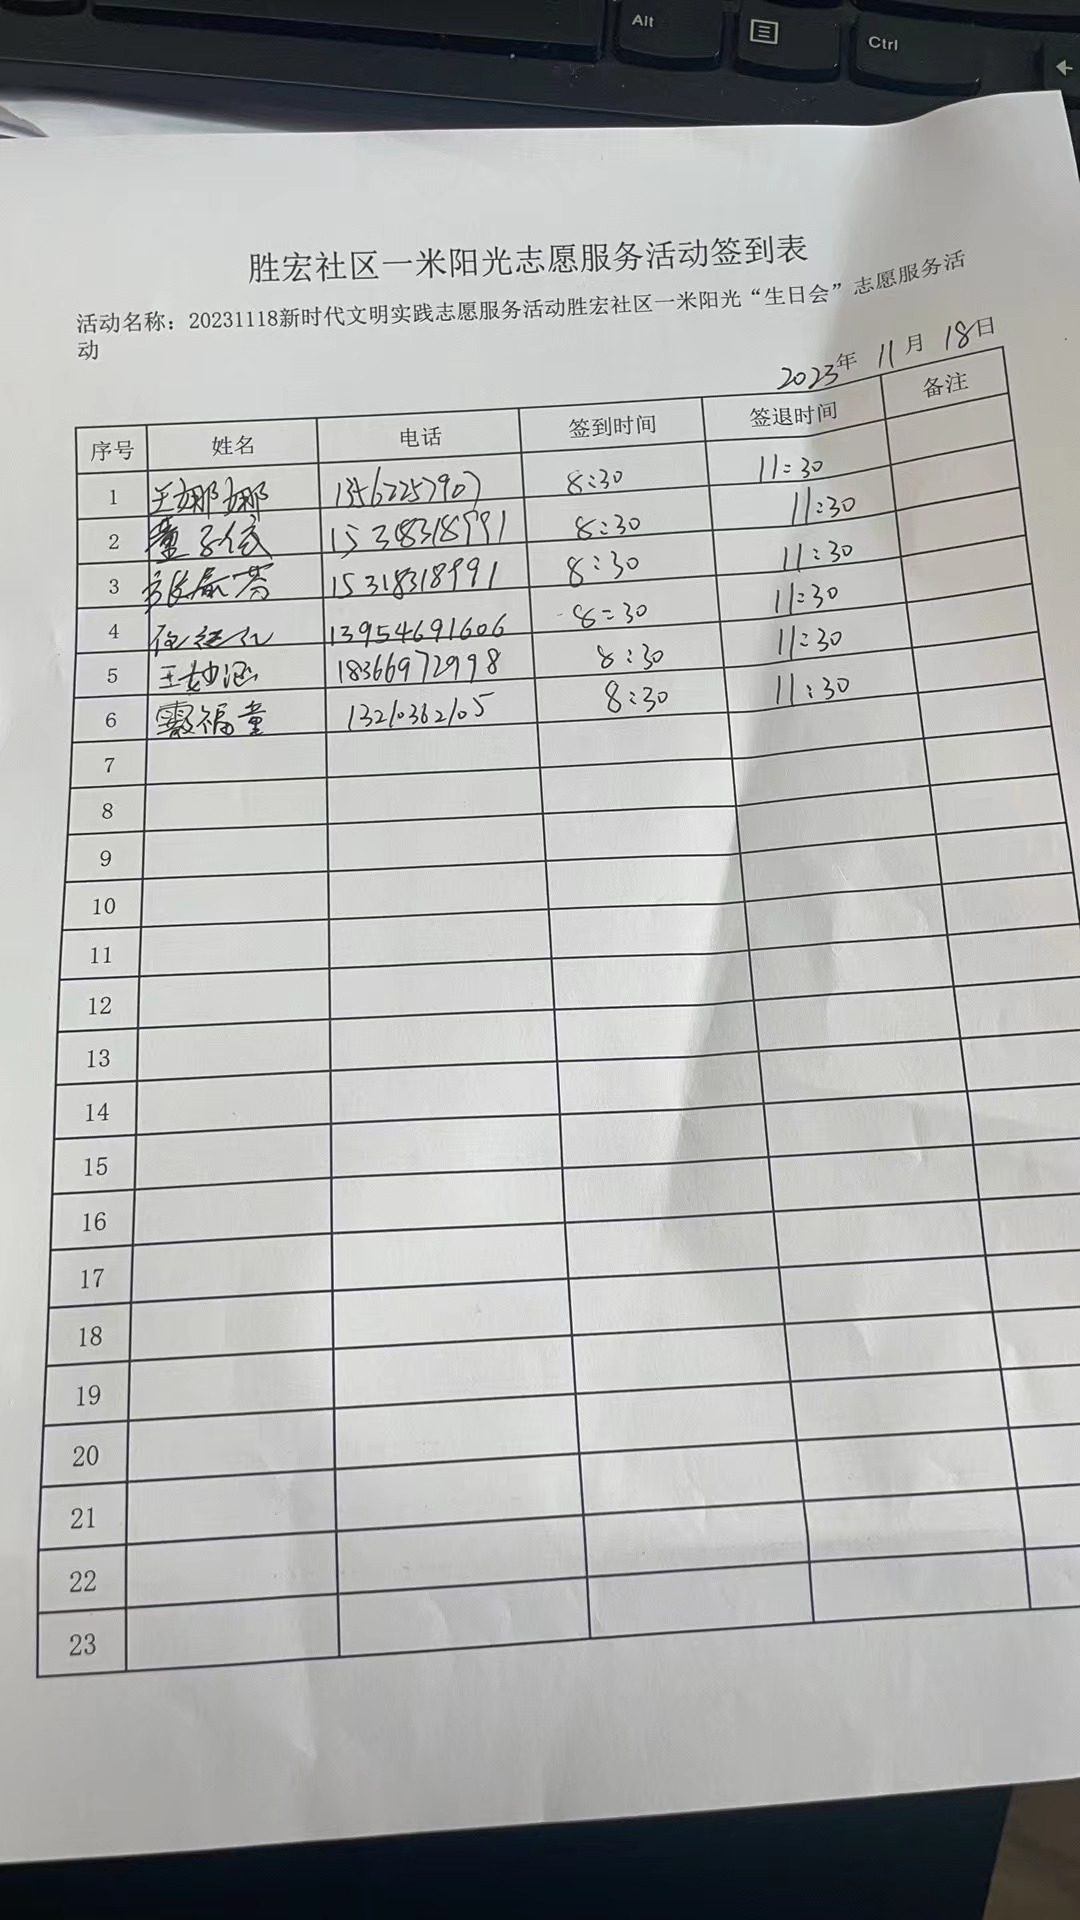 Alt
Ctrl
胜宏社区一米阳光志愿服务活动签到表
活动名称：20231118新时代文明实践志愿服务活动胜宏社区一米阳光“生日会”志愿服务活
动
2023年 11月 18日
序号 姓名 电话 签到时间 签退时间 备注
1 王娜娜 13562257907 8:30 11:30
2 董子依 15318318991 8:30 11:30
3 15318318991 8:30 11:30
4 13954691606 8:30 11:30
5 王妙涵 18366972998 8:30 11:30
6 福童 13210362105 8:30 11:30
7
8
9
10
11
12
13
14
15
16
17
18
19
20
21
22
23